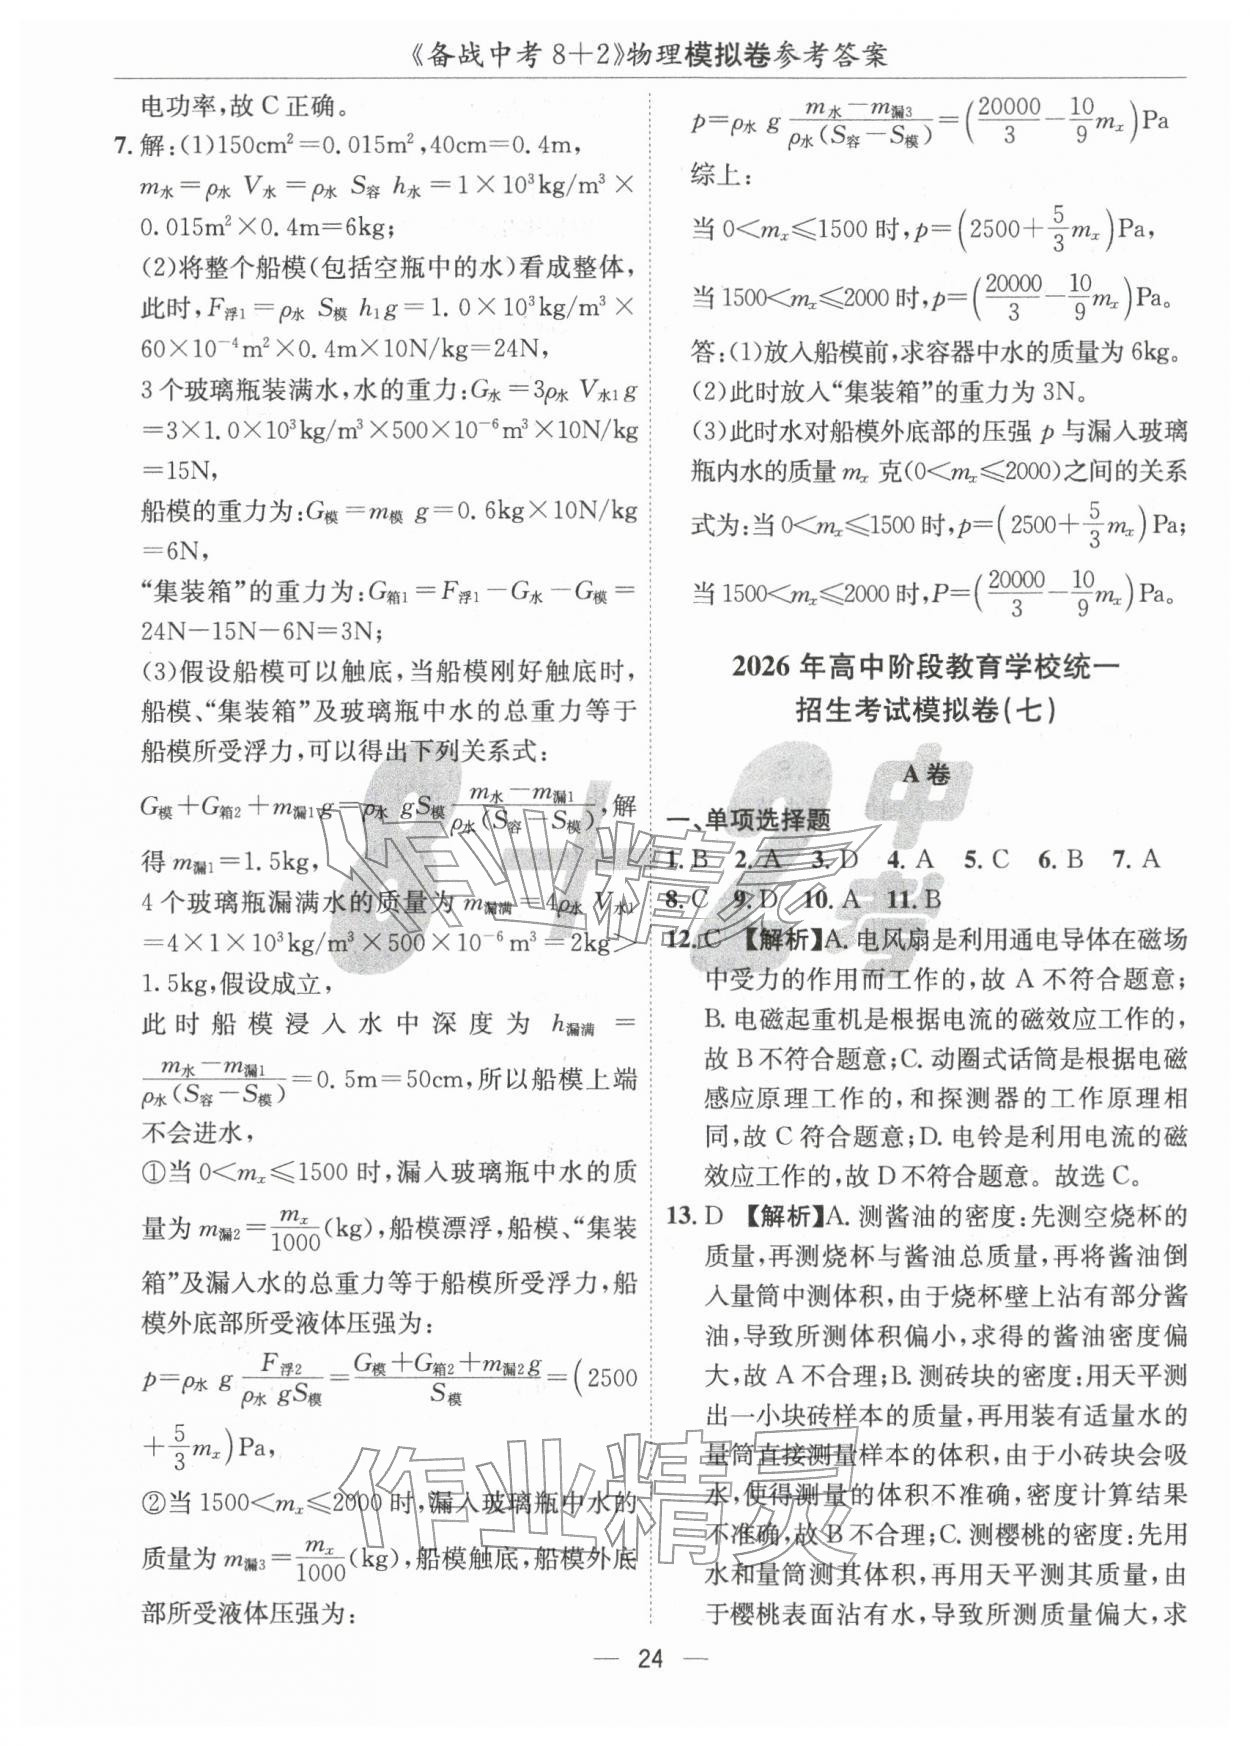 《备战中考 8+2》物理模拟卷参考答案
电功率,故 C 正确。
7. 解:(1)150cm²=0.015m²,40cm=0.4m,
m水=ρ水 V水=ρ水 S容 h水=1×10³kg/m³×
0.015m²×0.4m=6kg;
(2)将整个船模(包括空瓶中的水)看成整体,
此时,F浮1=ρ水 S模 h₁g=1.0×10³kg/m³×
60×10⁻⁴m²×0.4m×10N/kg=24N,
3 个玻璃瓶装满水,水的重力:G水=3ρ水 V水1 g
=3×1.0×10³kg/m³×500×10⁻⁶m³×10N/kg
=15N,
船模的重力为:G模=m模 g=0.6kg×10N/kg
=6N,
“集装箱”的重力为:G箱1=F浮1-G水-G模=
24N-15N-6N=3N;
(3)假设船模可以触底,当船模刚好触底时,
船模、“集装箱”及玻璃瓶中水的总重力等于
船模所受浮力,可以得出下列关系式:
G模+G箱2+m漏1g=ρ水 gS模 (m水-m漏1)/(ρ水(S容-S模)),解
得 m漏1=1.5kg,
4 个玻璃瓶漏满水的质量为 m漏满=4ρ水 V水1
=4×1×10³kg/m³×500×10⁻⁶m³=2kg>
1.5kg,假设成立,
此时船模浸入水中深度为 h漏满=
(m水-m漏1)/(ρ水(S容-S模))=0.5m=50cm,所以船模上端
不会进水,
①当 0<mₓ≤1500 时,漏入玻璃瓶中水的质
量为 m漏2=mₓ/1000(kg),船模漂浮,船模、“集装
箱”及漏入水的总重力等于船模所受浮力,船
模外底部所受液体压强为:
p=ρ水 g F浮2/(ρ水 gS模)=(G模+G箱2+m漏2g)/S模=(2500
+5/3 mₓ)Pa,
②当 1500<mₓ≤2000 时,漏入玻璃瓶中水的
质量为 m漏3=mₓ/1000(kg),船模触底,船模外底
部所受液体压强为:
p=ρ水 g (m水-m漏3)/(ρ水(S容-S模))=(20000/3-10/9 mₓ)Pa
综上:
当 0<mₓ≤1500 时,p=(2500+5/3 mₓ)Pa,
当 1500<mₓ≤2000 时,p=(20000/3-10/9 mₓ)Pa。
答:(1)放入船模前,求容器中水的质量为 6kg。
(2)此时放入“集装箱”的重力为 3N。
(3)此时水对船模外底部的压强 p 与漏入玻璃
瓶内水的质量 mₓ 克(0<mₓ≤2000)之间的关系
式为:当 0<mₓ≤1500 时,p=(2500+5/3 mₓ)Pa;
当 1500<mₓ≤2000 时,P=(20000/3-10/9 mₓ)Pa。
2026 年高中阶段教育学校统一
招生考试模拟卷(七)
A 卷
一、单项选择题
1. B 2. A 3. D 4. A 5. C 6. B 7. A
8. C 9. D 10. A 11. B
12. C 【解析】A. 电风扇是利用通电导体在磁场
中受力的作用而工作的,故 A 不符合题意;
B. 电磁起重机是根据电流的磁效应工作的,
故 B 不符合题意;C. 动圈式话筒是根据电磁
感应原理工作的,和探测器的工作原理相
同,故 C 符合题意;D. 电铃是利用电流的磁
效应工作的,故 D 不符合题意。故选 C。
13. D 【解析】A. 测酱油的密度:先测空烧杯的
质量,再测烧杯与酱油总质量,再将酱油倒
入量筒中测体积,由于烧杯壁上沾有部分酱
油,导致所测体积偏小,求得的酱油密度偏
大,故 A 不合理;B. 测砖块的密度:用天平测
出一小块砖样本的质量,再用装有适量水的
量筒直接测量样本的体积,由于小砖块会吸
水,使得测量的体积不准确,密度计算结果
不准确,故 B 不合理;C. 测樱桃的密度:先用
水和量筒测其体积,再用天平测其质量,由
于樱桃表面沾有水,导致所测质量偏大,求
— 24 —
8+2
中考
作业精灵
作业精灵